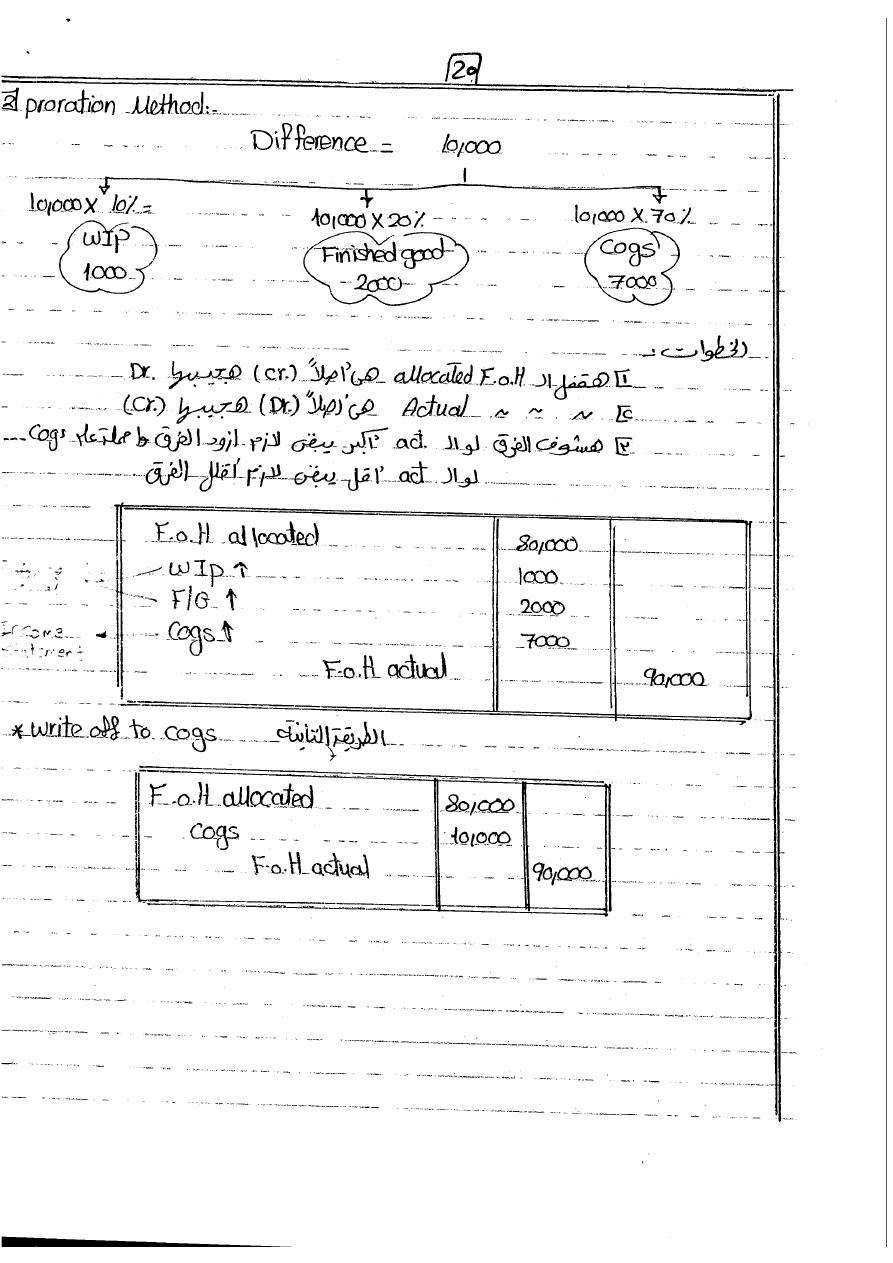 20
2 proration Method:-
Difference = 10,000
10,000 X 10% = 10,000 X 20% 10,000 X 70%
WIP Finished good Cogs
1000 2000 7000
الخطوات :-
1 هقفل ال allocated F.o.H هي أصلاً (cr.) هجيبها Dr.
2 ~ ~ ~ Actual هي أصلاً (Dr.) هجيبها (Cr.)
3 هشوف الفرق لو ال act. أكبر يبقى لازم ازود الفرق Cogs
لو ال act أقل يبقى لازم أقلل الفرق
F.o.H allocated 80,000
WIp ↑ 1000
F/G ↑ 2000
Income
statement
Cogs ↑ 7000
F.o.H actual 90,000
* Write off to cogs الطريقة التانية
F.o.H allocated 80,000
cogs 10,000
F.o.H actual 90,000